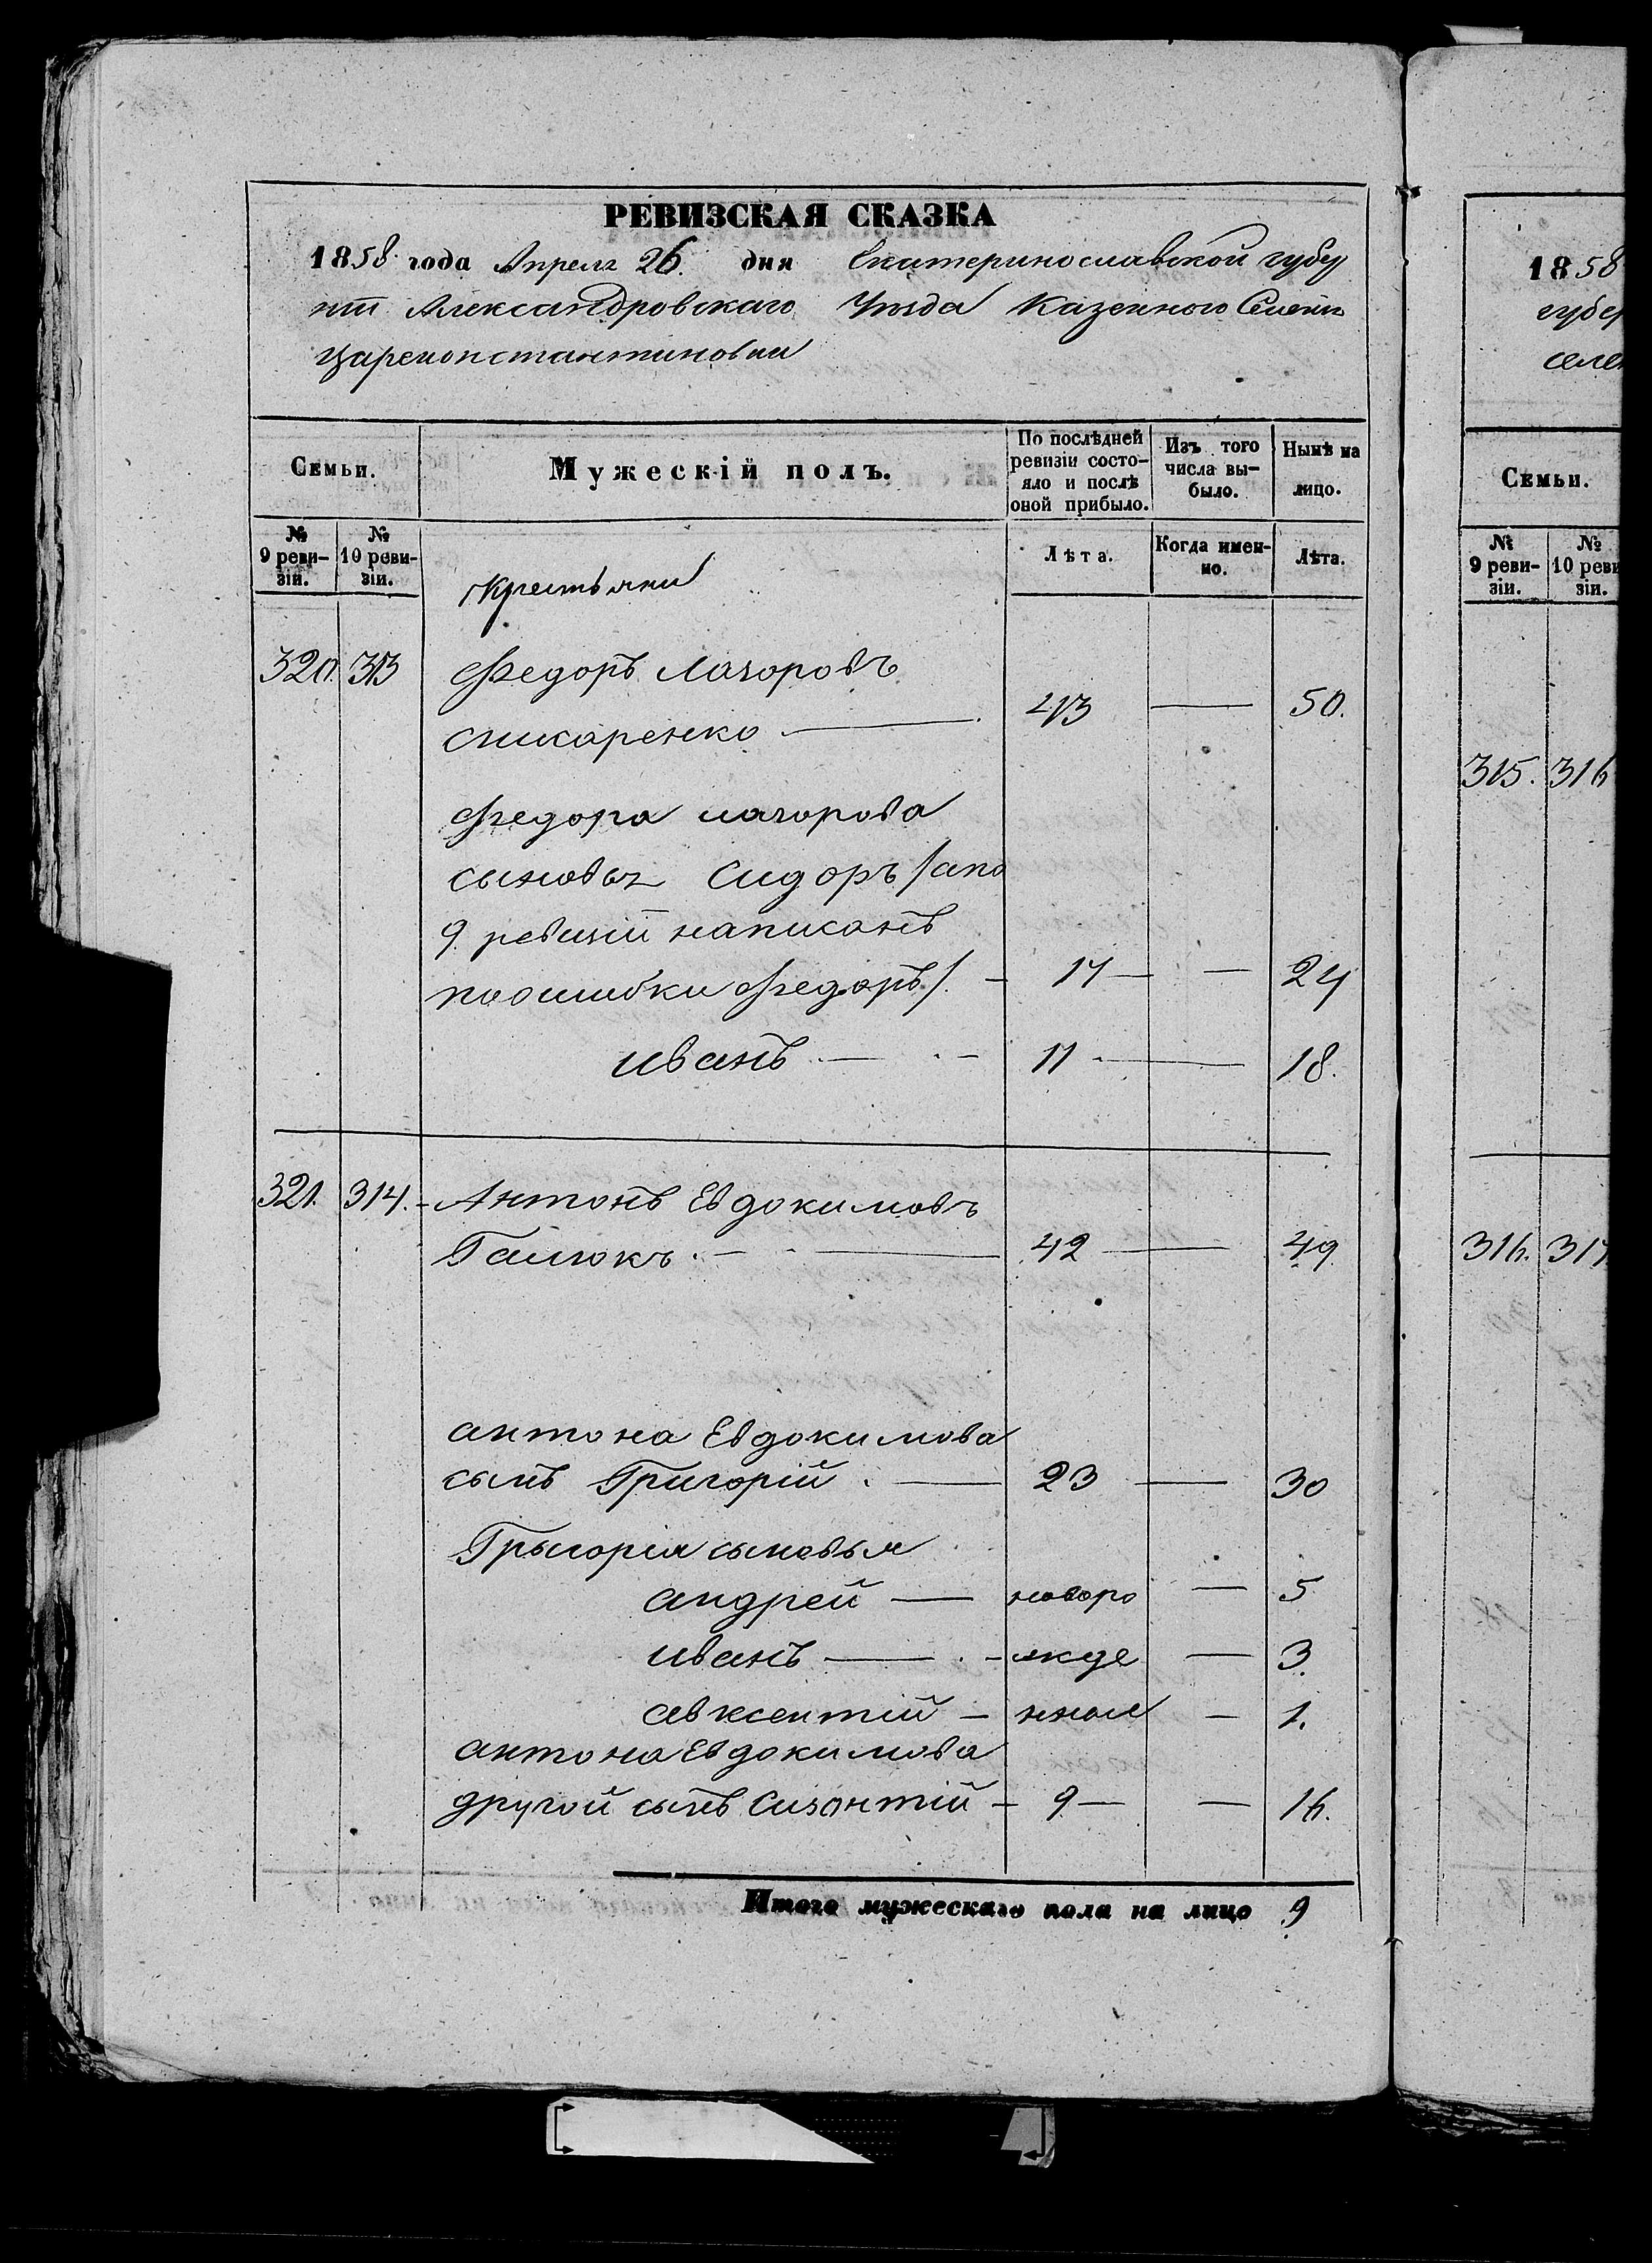 РЕВИЗСКАЯ СКАЗКА
1858 года Апреля 26. дня Екатеринославской губер
нии Александровскаго Уезда Казенного Селения
Цареконстантиновки
Семьи.
Мужескій полъ.
По послѣдней ревизіи состояло и послѣ оной прибыло.
Изъ того числа выбыло.
Нынѣ на лицо.
№ 9 ревизіи.
№ 10 ревизіи.
Лѣта.
Когда именно.
Лѣта.
Крестьяни
320. 313 Федоръ Лазоровъ
Слюсаренко 43 — 50.
Федора лазорова
сыновья Сидоръ /апо
9. ревизіи написанъ
поошибки Федоръ/. 17 — 24
иванъ 11 — 18.
321. 314. Антонъ Евдокимовъ
Галюкъ 42 — 49
антона Евдокимова
сынъ Григорій 23 — 30
Грыгорія сыновья
андрей — новоро — 5
иванъ — жде — 3.
авксентій — нныя — 1.
антона Евдокимова
другой сынъ Сизонтій — 9 — 16.
Итого мужескаго пола на лицо 9
1858
губер
селе
Семьи.
№ 9 ревизіи.
№ 10 реви
зіи.
315. 316
316. 317